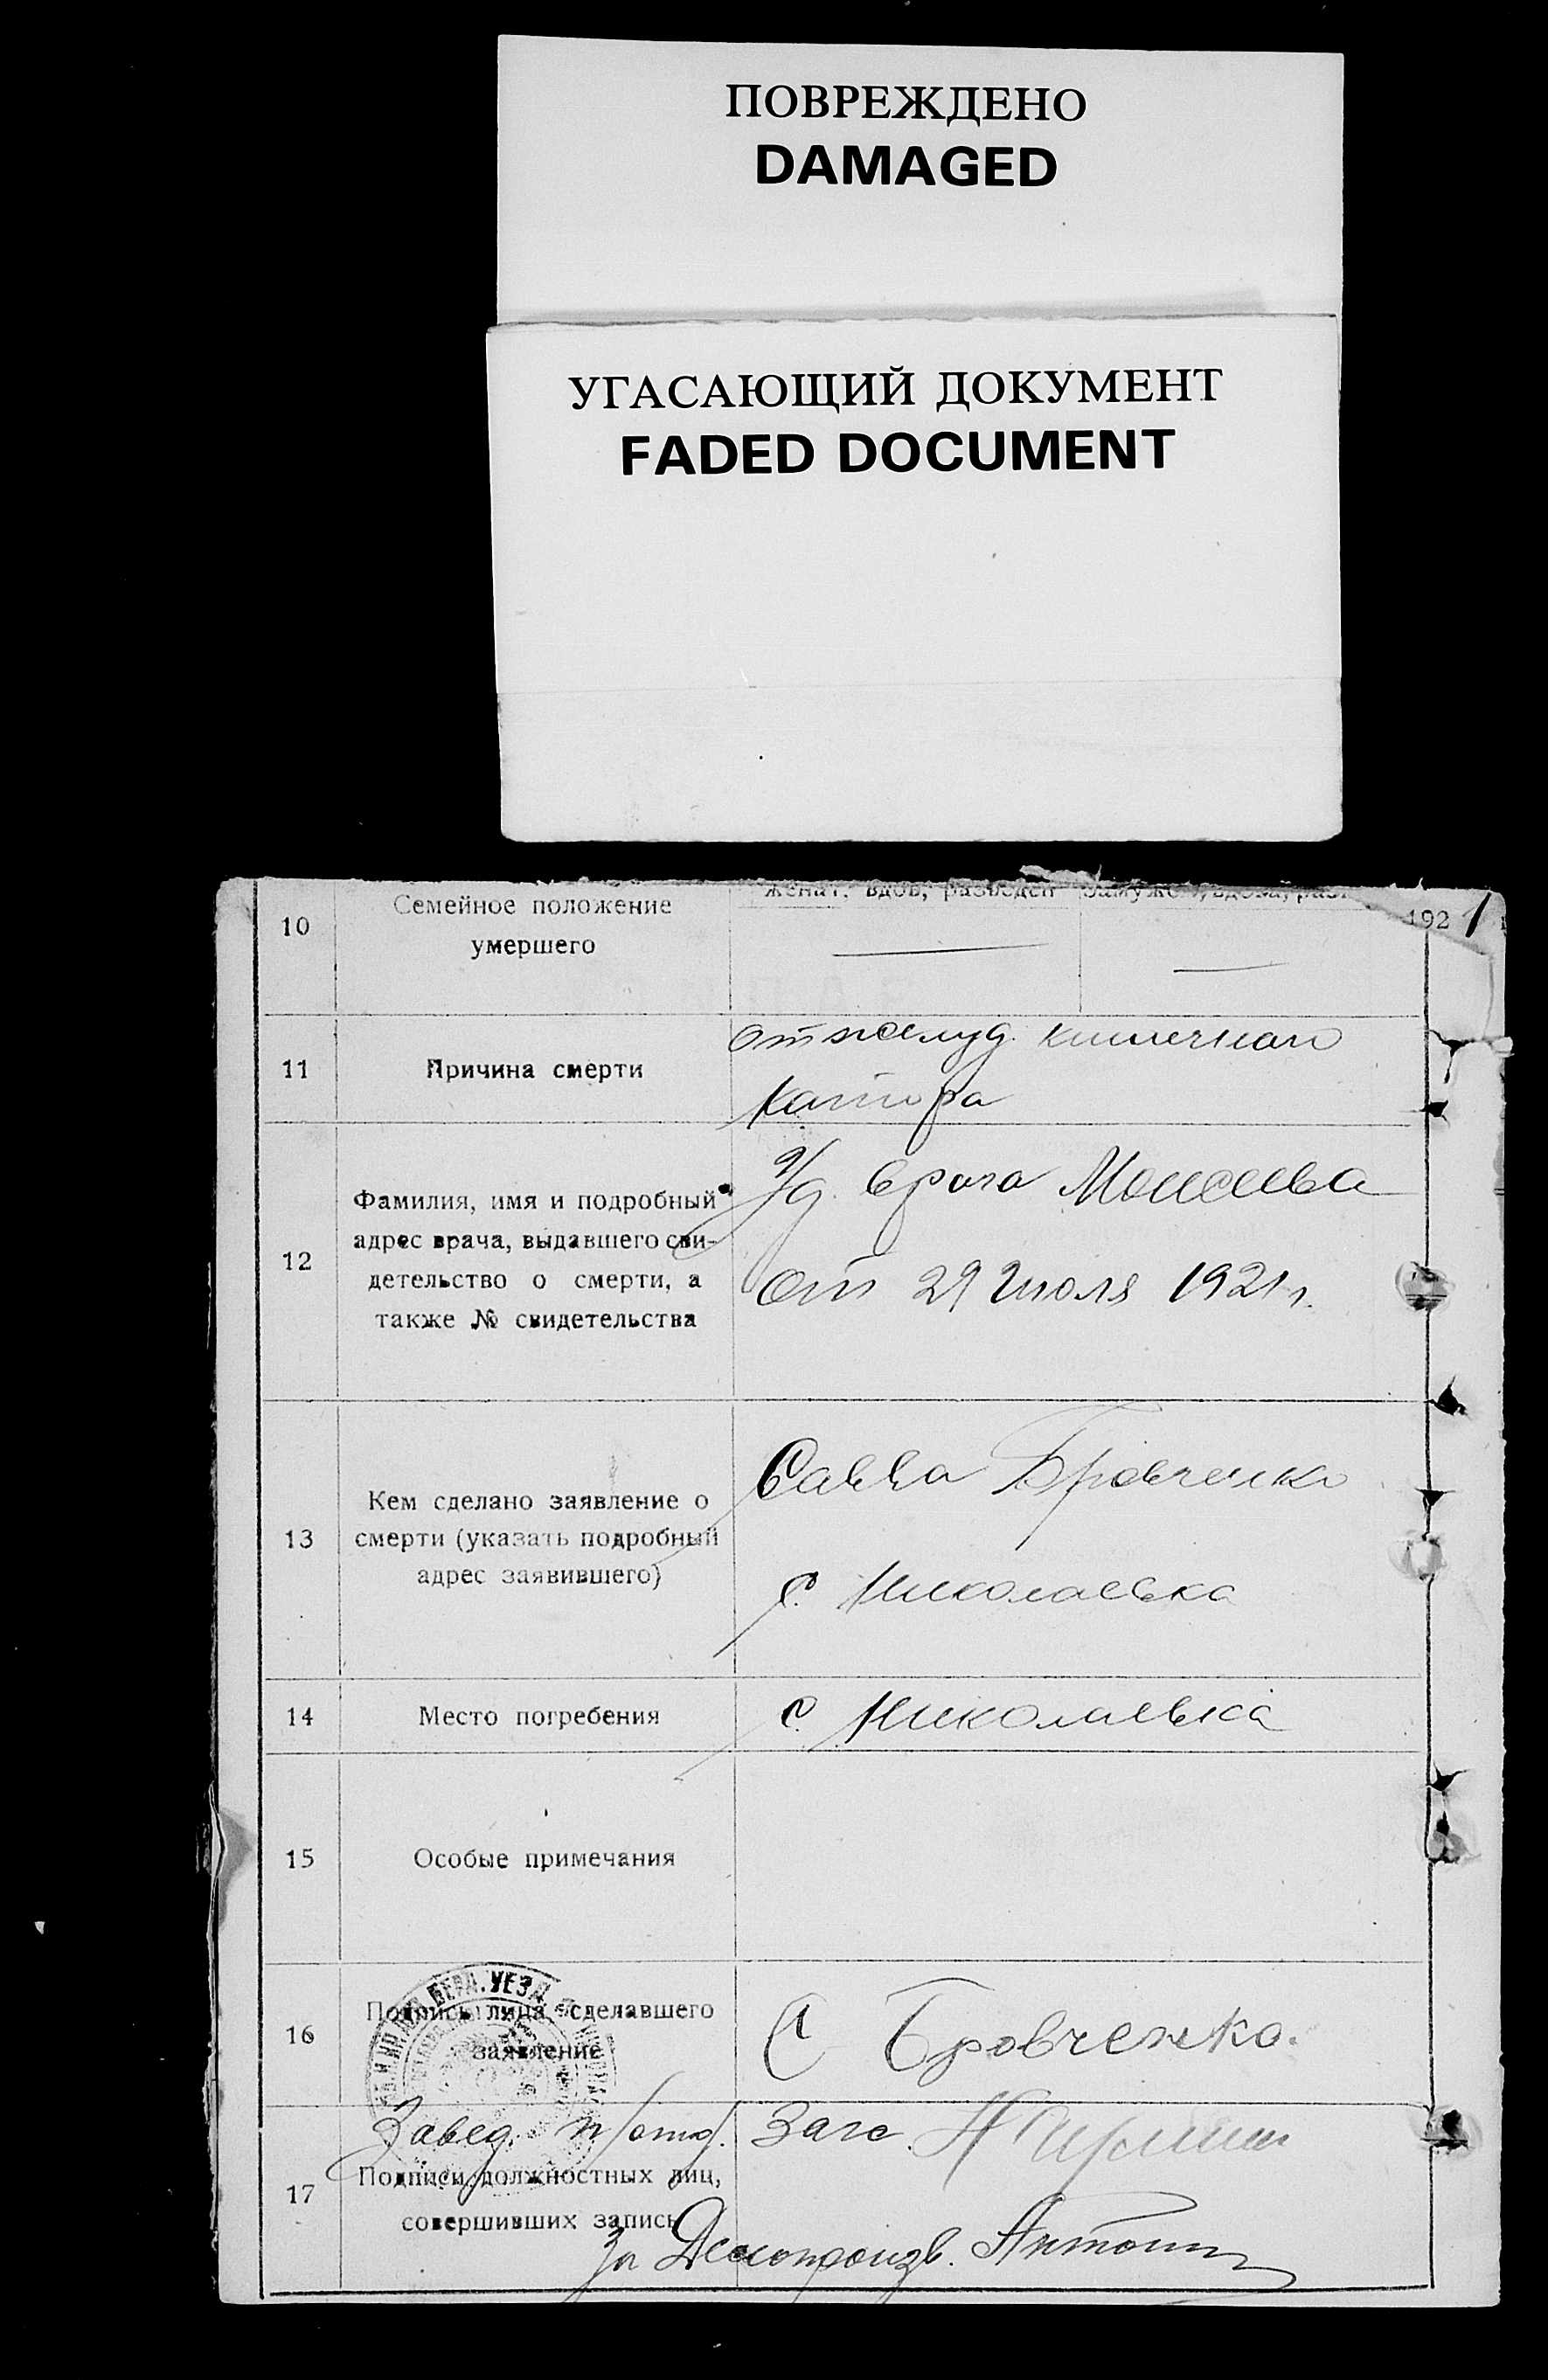 ПОВРЕЖДЕНО
DAMAGED
УГАСАЮЩИЙ ДОКУМЕНТ
FADED DOCUMENT
женат, вдов, разведен
замужем, вдова,
192 1
10
Семейное положение
умершего
11
Причина смерти
от желуд. кишечнаго
катара
12
Фамилия, имя и подробный
адрес врача, выдавшего сви-
детельство о смерти, а
также № свидетельства
Уд. врача Моисеева
от 29 июля 1921 г.
13
Кем сделано заявление о
смерти (указать подробный
адрес заявившего)
Савва Бровченко
с. Николаевка
14
Место погребения
с. Николаевка
15
Особые примечания
16
Подпись лица, сделавшего
заявление
БЕРД. УЕЗД.
С Бровченко.
Завед. п/отд. Загс.
17
Подписи должностных лиц,
совершивших запись
За Делопроизв.